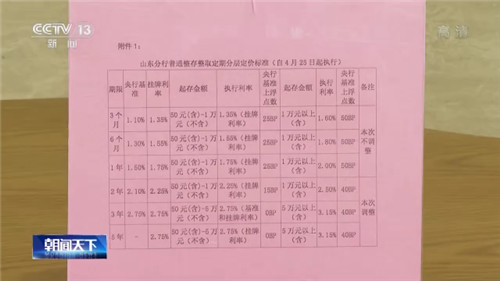 CCTV 13
新闻
高清
附件1：
山东分行普通整存整取定期分层定价标准（自4月25日起执行）
期限 央行基准 挂牌利率 起存金额 执行利率 央行基准上浮点数 起存金额 执行利率 央行基准上浮点数 备注
3个月 1.10% 50元(含)-1万元(不含) (挂牌利率) 25BP 1万元以上(含) 1.60% 50BP 本次不调整
6个月 1.30% 50元(含)-1万元(不含) (挂牌利率) 25BP 1万元以上(含) 1.80% 50BP
1年 1.50% 1.75% 50元(含)-1万元(不含) 1.75%(挂牌利率) 25BP 1万元以上(含) 2.00% 50BP
2年 2.10% 2.25% 50元(含)-1万元(不含) 2.25%(挂牌利率) 1万元以上(含) 2.50% 40BP 本次调整
3年 2.75% 2.75% 50元(含)-5万元(不含) 2.75%(基准和挂牌利率) 0BP 5万元以上(含) 3.15% 40BP
5年 - 2.75% 50元(含)-5万元(不含) 2.75%(挂牌利率) 0BP 5万元以上(含) 40BP
朝闻天下